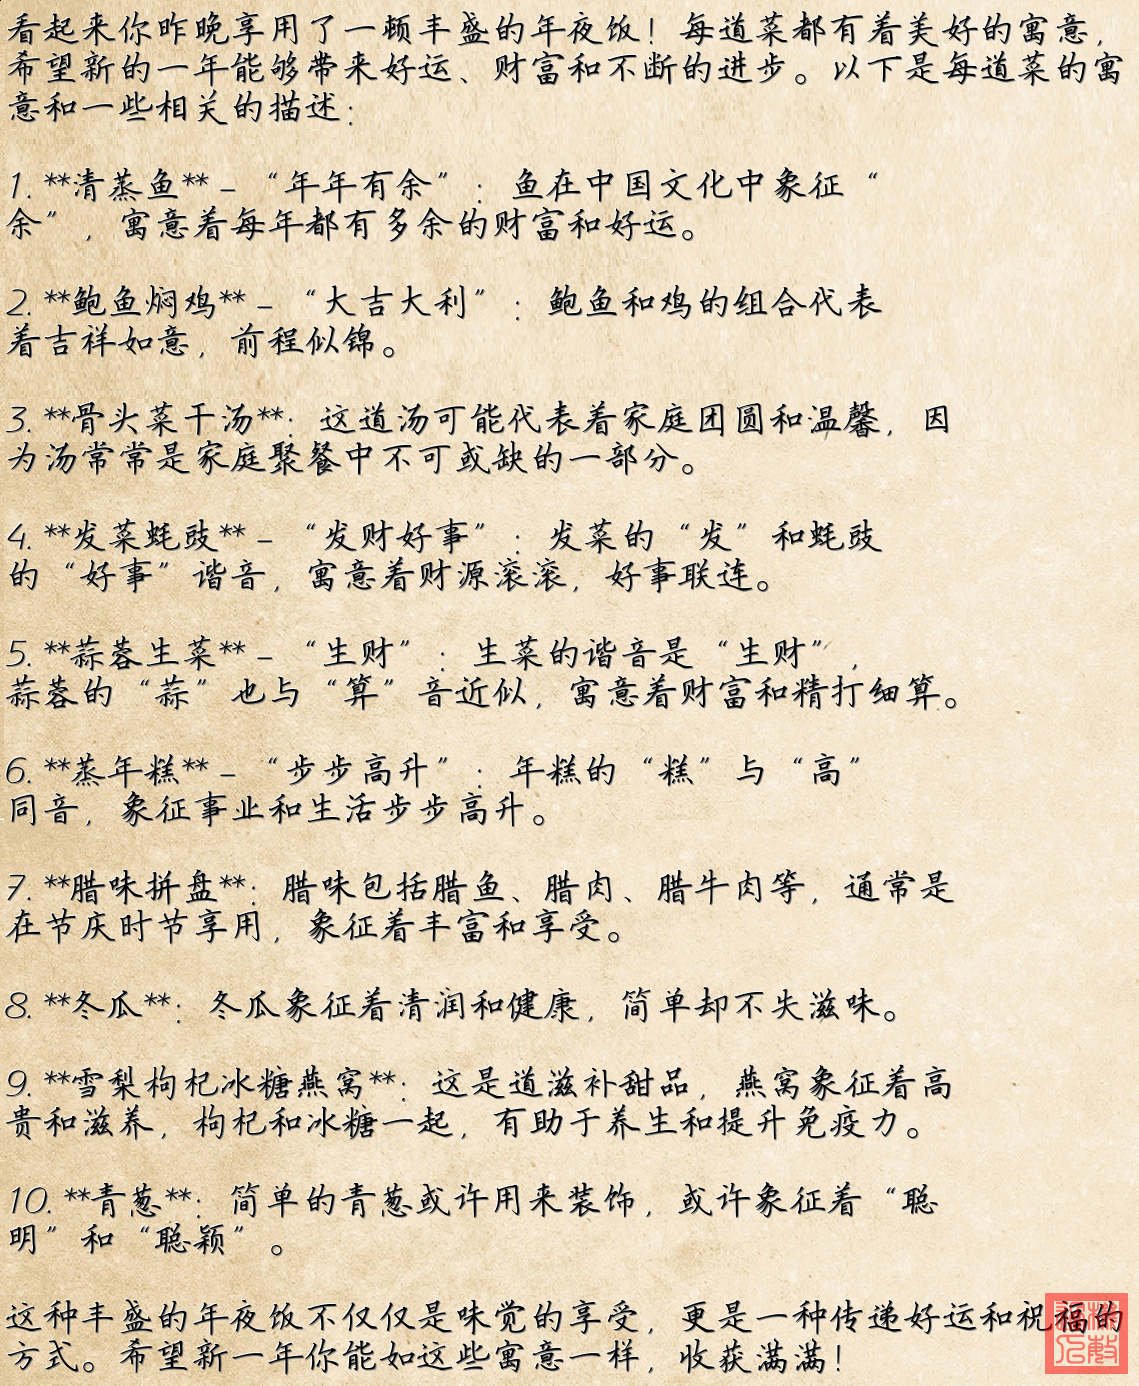 看起来你昨晚享用了一顿丰盛的年夜饭！每道菜都有着美好的寓意，
希望新的一年能够带来好运、财富和不断的进步。以下是每道菜的寓
意和一些相关的描述：
1. **清蒸鱼** – “年年有余”：鱼在中国文化中象征“
余”，寓意着每年都有多余的财富和好运。
2. **鲍鱼焖鸡** – “大吉大利”：鲍鱼和鸡的组合代表
着吉祥如意，前程似锦。
3. **骨头菜干汤**：这道汤可能代表着家庭团圆和温馨，因
为汤常常是家庭聚餐中不可或缺的一部分。
4. **发菜蚝豉** – “发财好事”：发菜的“发”和蚝豉
的“好事”谐音，寓意着财源滚滚，好事联连。
5. **蒜蓉生菜** – “生财”：生菜的谐音是“生财”，
蒜蓉的“蒜”也与“算”音近似，寓意着财富和精打细算。
6. **蒸年糕** – “步步高升”：年糕的“糕”与“高”
同音，象征事业和生活步步高升。
7. **腊味拼盘**：腊味包括腊鱼、腊肉、腊牛肉等，通常是
在节庆时节享用，象征着丰富和享受。
8. **冬瓜**：冬瓜象征着清润和健康，简单却不失滋味。
9. **雪梨枸杞冰糖燕窝**：这是道滋补甜品，燕窝象征着高
贵和滋养，枸杞和冰糖一起，有助于养生和提升免疫力。
10. **青葱**：简单的青葱或许用来装饰，或许象征着“聪
明”和“聪颖”。
这种丰盛的年夜饭不仅仅是味觉的享受，更是一种传递好运和祝福的
方式。希望新一年你能如这些寓意一样，收获满满！